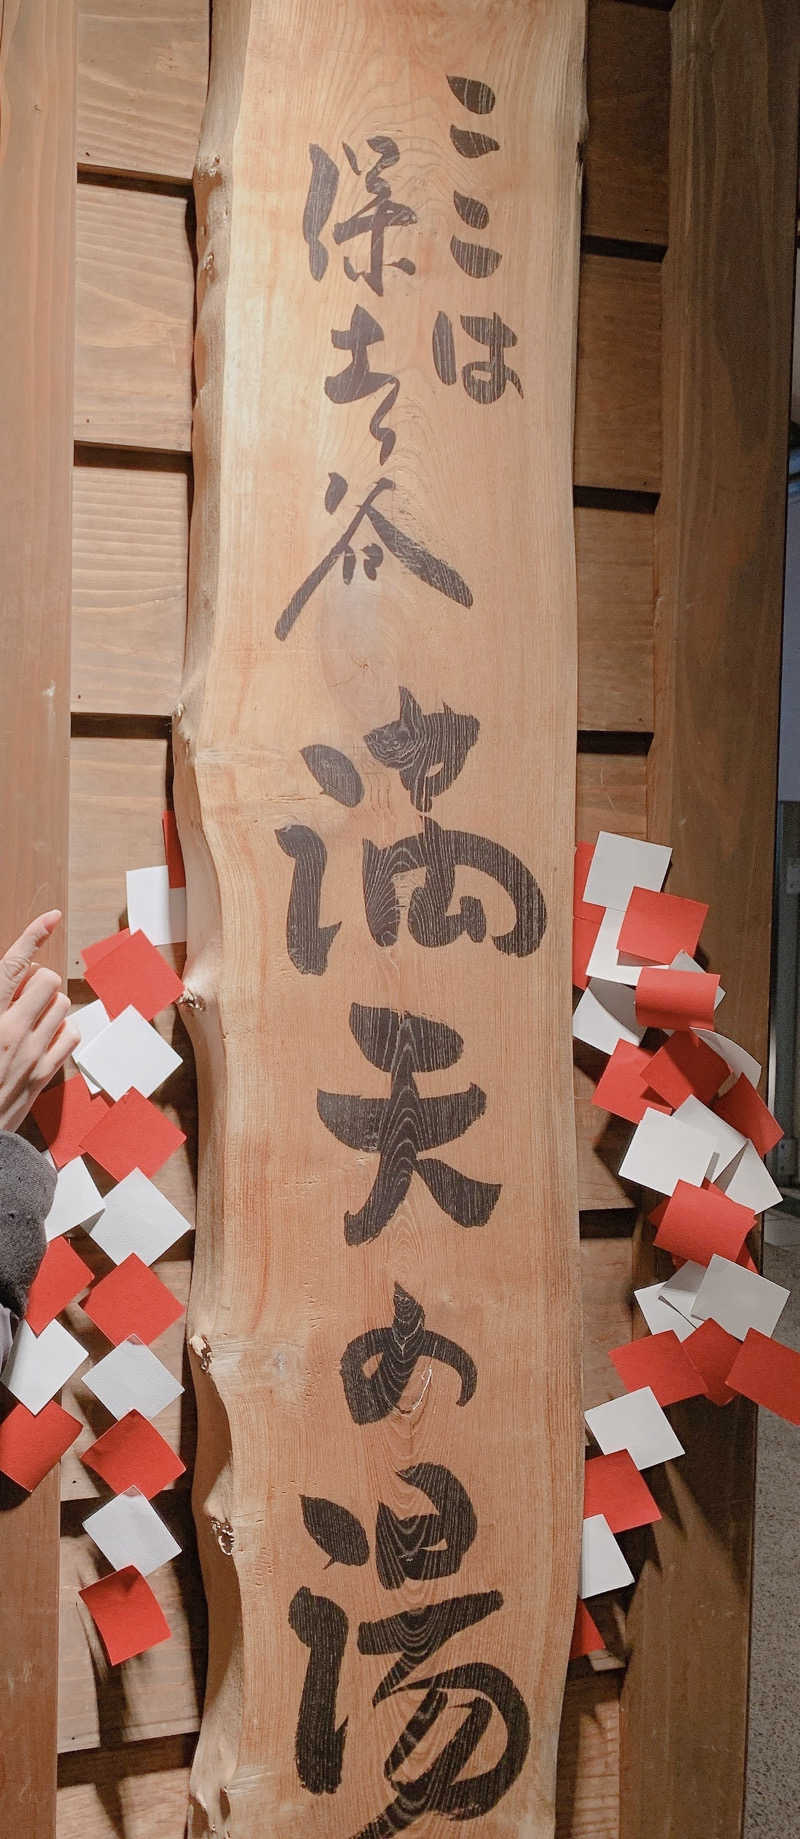 ここは
保土谷
満天の湯